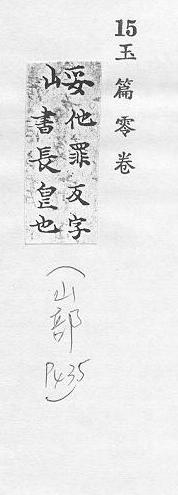 15
玉篇零卷
他罪反字
書長皃也
(山部
P435)